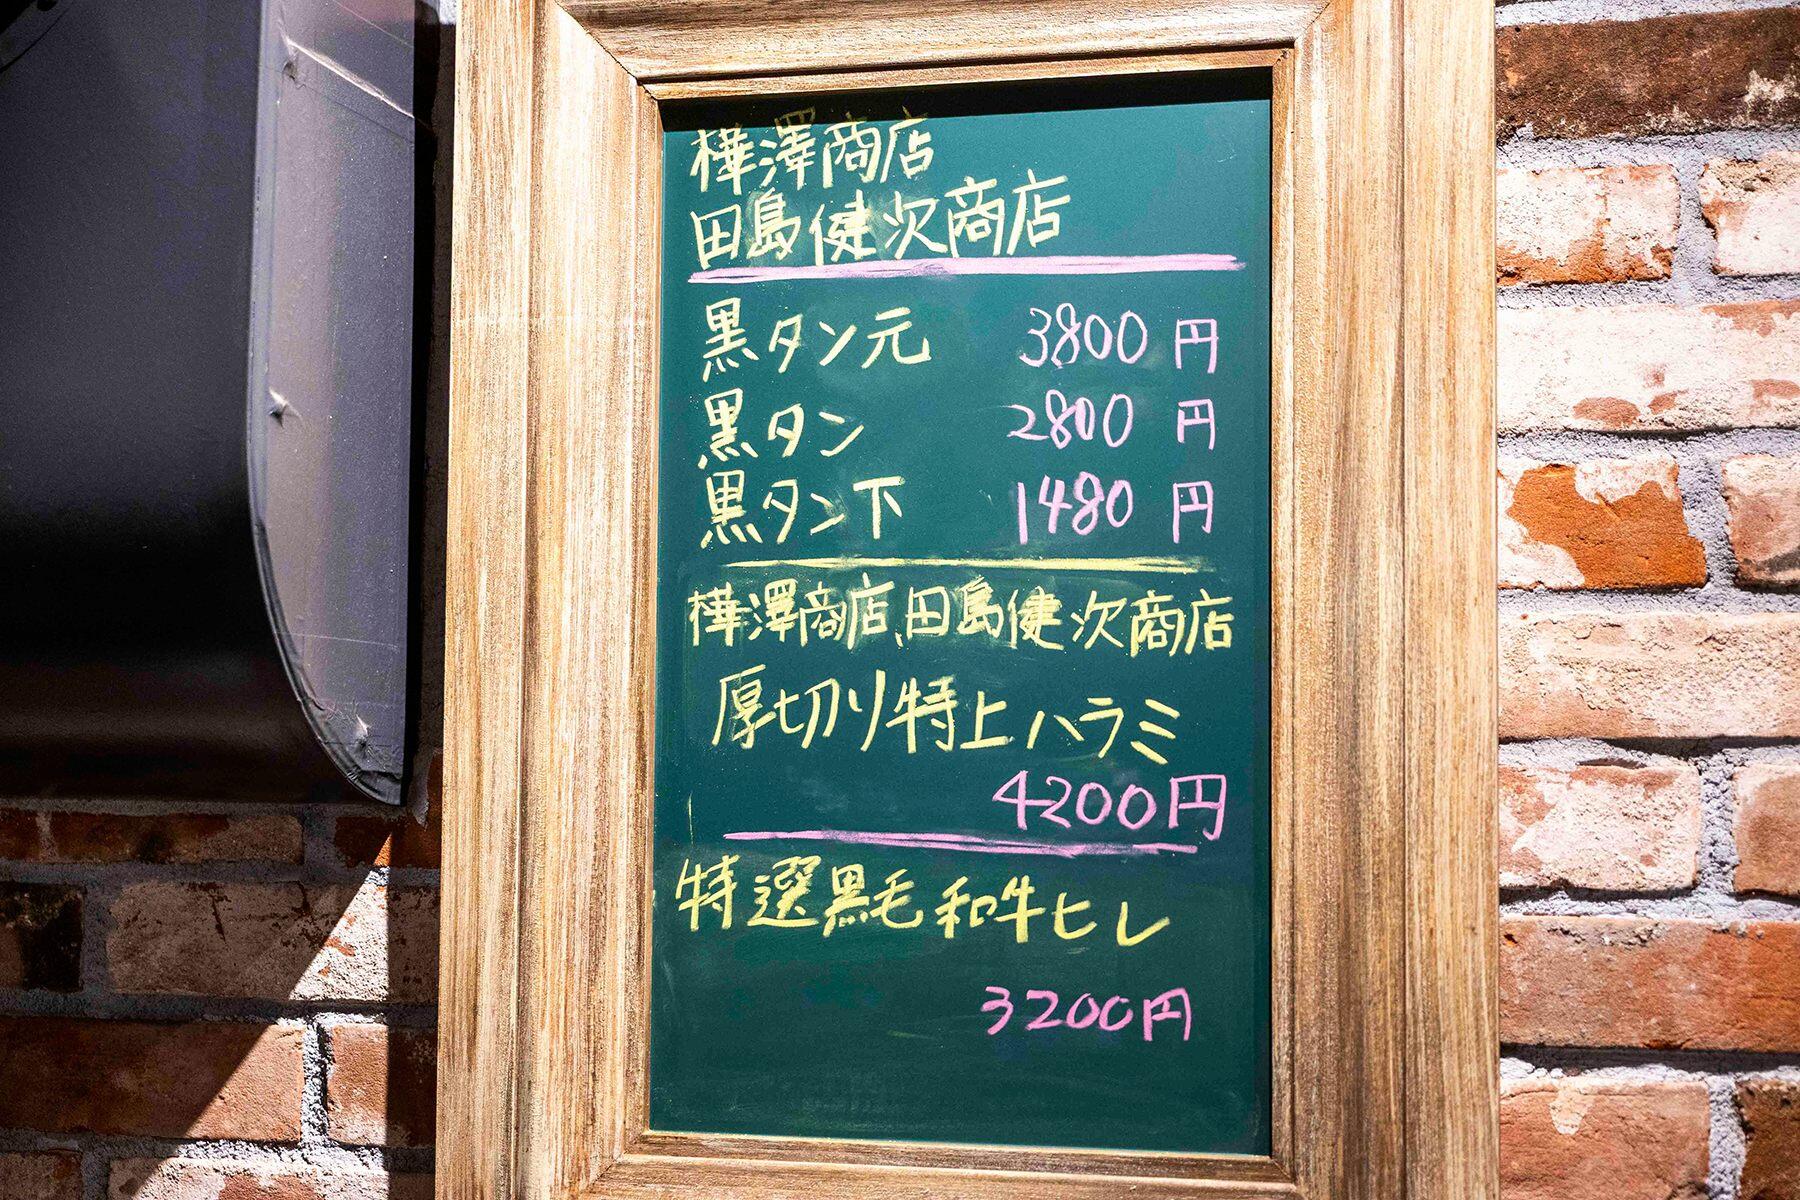 樺澤商店
田島健次商店
黒タン元 3800円
黒タン 2800円
黒タン下 1480円
樺澤商店、田島健次商店
厚切り特上ハラミ
4200円
特選黒毛和牛ヒレ
3200円